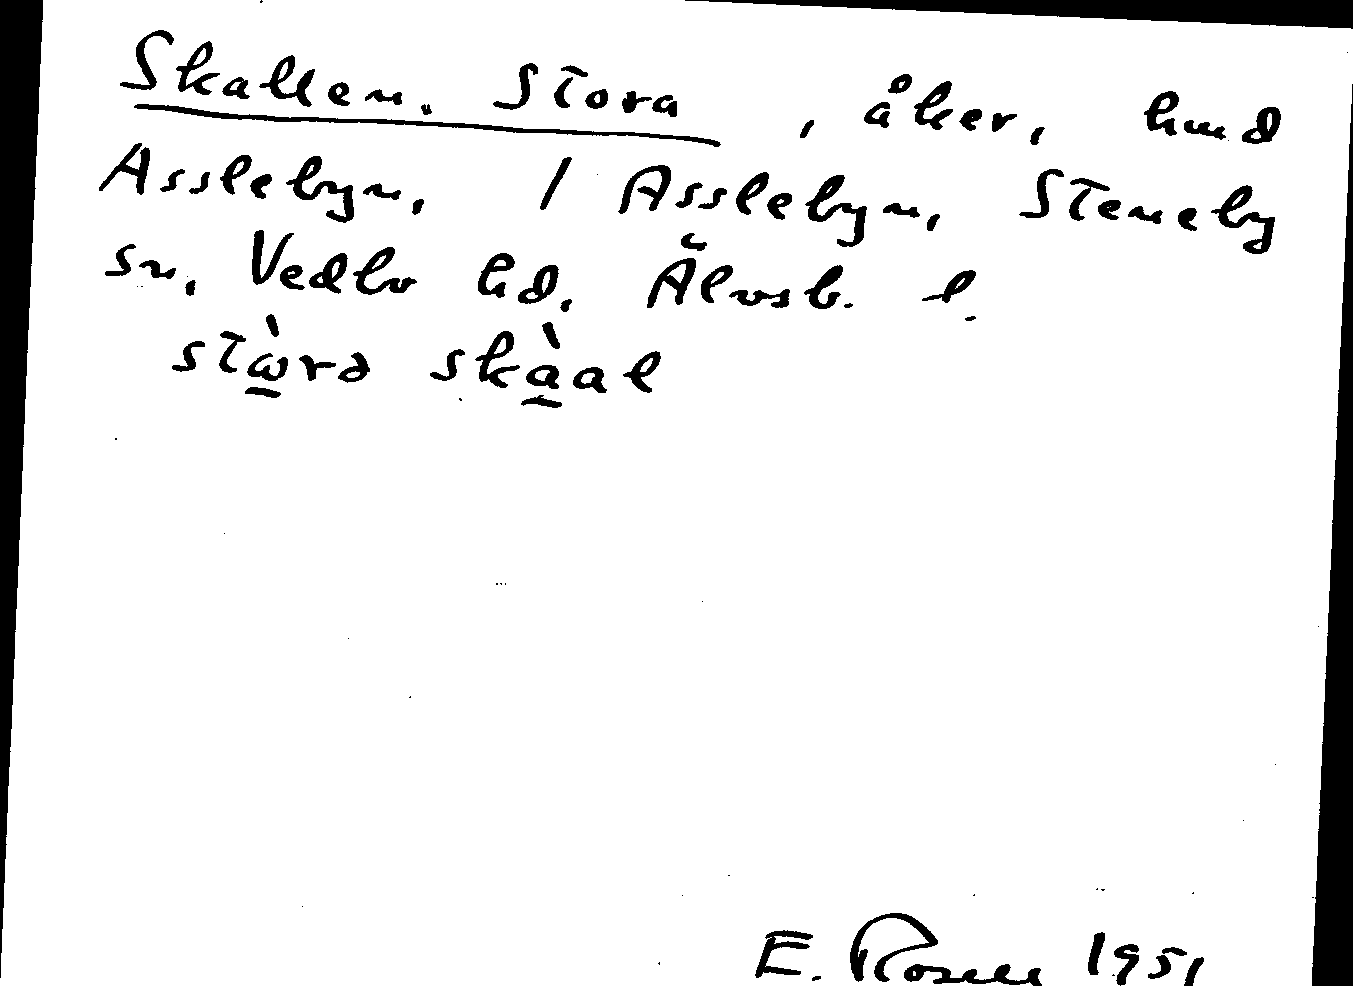 Skallen. Stora , åker, hmd
Asslebyn, / Asslebyn, Steneby
sn, Vedbo hd, Älvsb. l.
stὼ̱rə skà̱aɫ
E. Rosell 1951